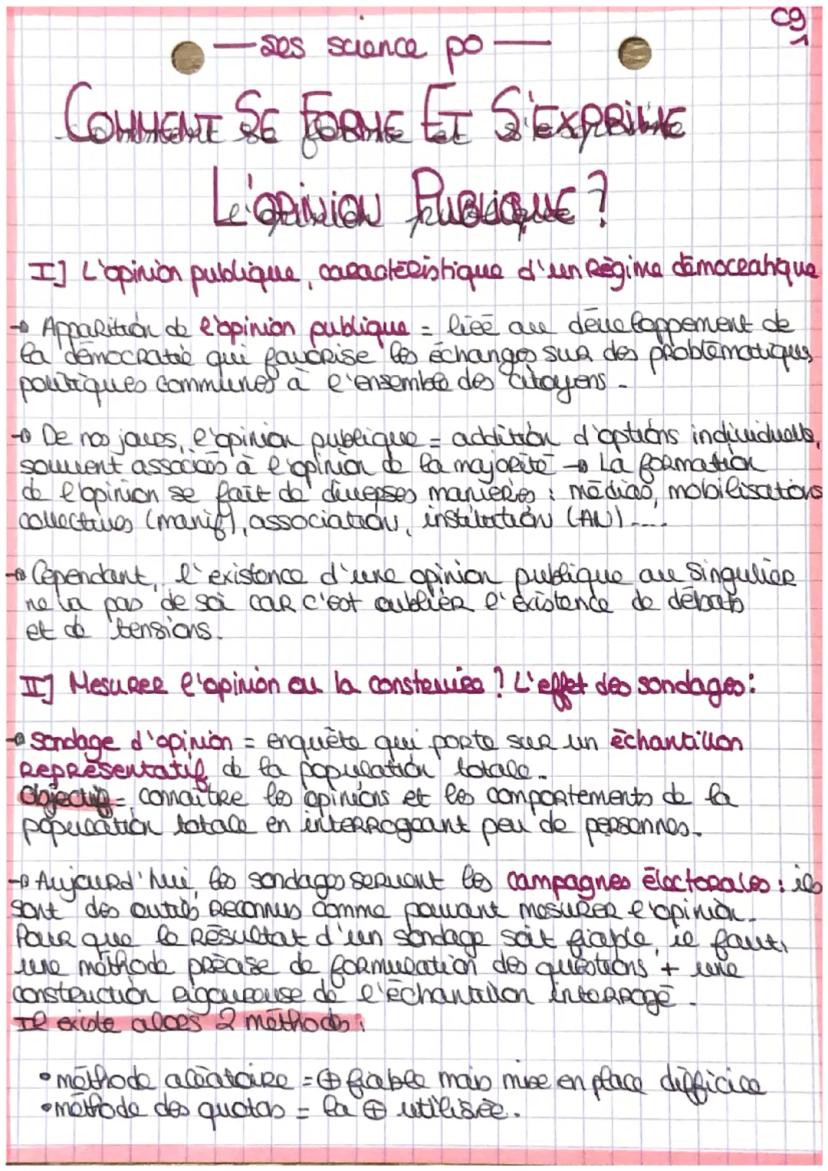 C9
1
— SES science po —
COMMENT SE FORME ET S'EXPRIME
L'OPINION PUBLIQUE ?
I] L'opinion publique, caractéristique d'un Régime démocratique
→ Apparition de l'opinion publique = liée au développement de
la démocratie qui favorise les échanges sur des problématiques
politiques communes à l'ensemble des citoyens.
→ De nos jours, l'opinion publique = addition d'options individuels,
souvent associées à l'opinion de la majorité → La formation
de l'opinion se fait de diverses manières : médias, mobilisations
collectives (manif), association, institution (AN)....
→ Cependant, l'existence d'une opinion publique au singulier
ne va pas de soi car c'est oublier l'existence de débats
et de tensions.
II] Mesurer l'opinion ou la construire ? L'effet des sondages :
→ Sondage d'opinion = enquête qui porte sur un échantillon
Représentatif de la population totale.
Objectif = connaître les opinions et les comportements de la
population totale en interrogeant peu de personnes.
→ Aujourd'hui, les sondages servent les campagnes électorales : ils
sont des outils reconnus comme pouvant mesurer l'opinion.
Pour que le Résultat d'un sondage soit fiable, il faut
une méthode précise de formulation des questions + une
construction rigoureuse de l'échantillon interrogé.
Il existe alors 2 méthodes :
• méthode aléatoire = ⊕ fiable mais mise en place difficile
• méthode des quotas = la ⊕ utilisée.